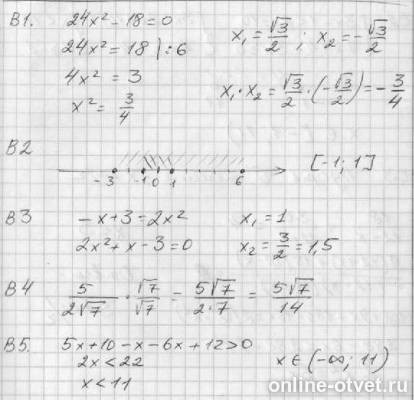 В1. 24x² - 18 = 0
24x² = 18 | : 6
4x² = 3
x² = 3/4
x₁ = √3/2 ; x₂ = -√3/2
x₁ · x₂ = √3/2 · (-√3/2) = -3/4
В2
-3 -1 0 1 6
[-1; 1]
В3 -x + 3 = 2x²
2x² + x - 3 = 0
x₁ = 1
x₂ = 3/2 = 1,5
В4 5/2√7 · √7/√7 = 5√7/2·7 = 5√7/14
В5. 5x + 10 - x - 6x + 12 > 0
2x < 22
x < 11
x ∈ (-∞; 11)
online-otvet.ru